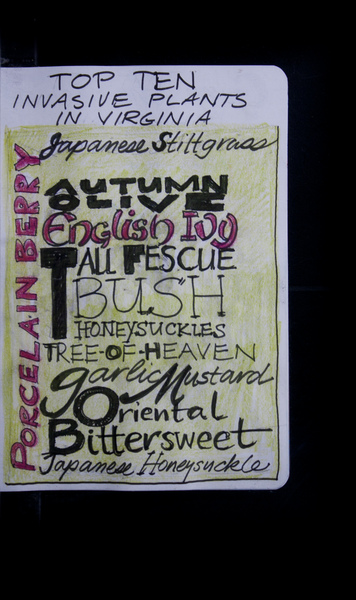 TOP TEN
INVASIVE PLANTS
IN VIRGINIA
Japanese Stiltgrass
PORCELAIN BERRY
AUTUMN
OLIVE
English Ivy
TALL FESCUE
BUSH
HONEYSUCKLES
TREE-OF-HEAVEN
garlic Mustard
Oriental
Bittersweet
Japanese Honeysuckle